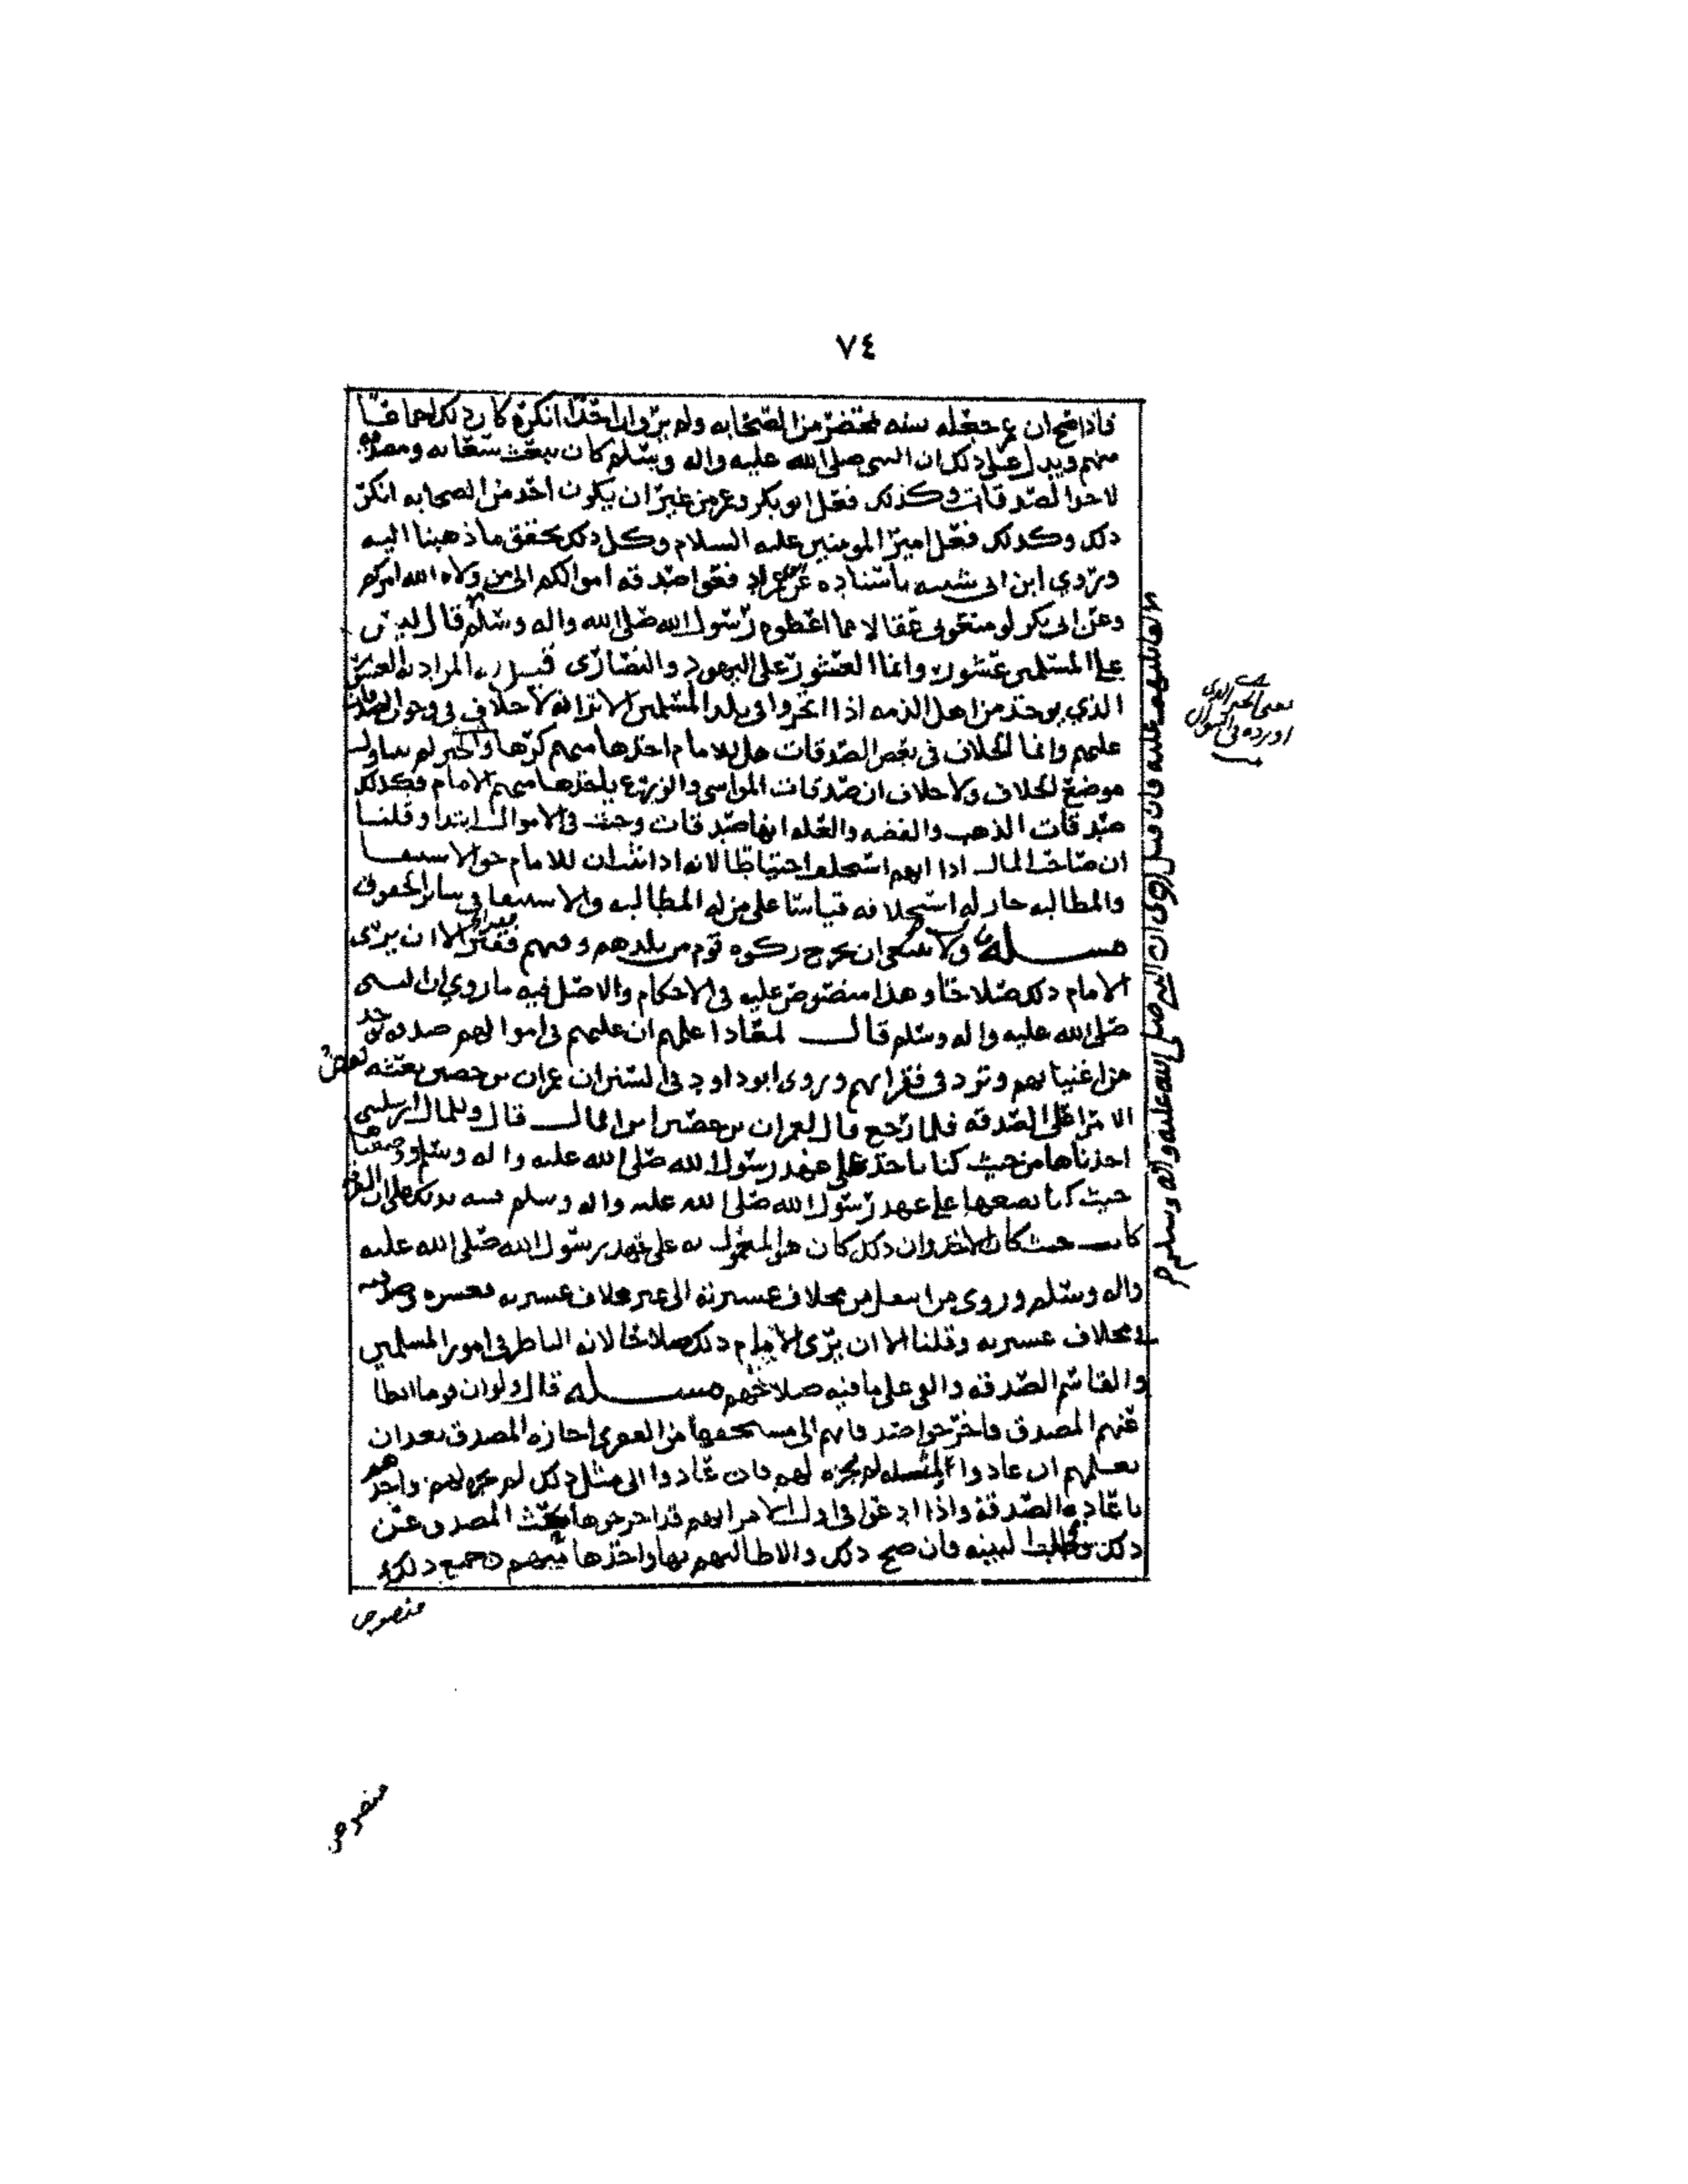 ٧٤
فاذا صح ان عمر جعله سنه بمحضر من الصحابه ولم يرو ان احدا انكره كان ذلك اجماعا
منهم ويدل على ذلك ان النبي صلى الله عليه واله وسلم كان يبعث سعاته ومصدقيه
لاخذ الصدقات وكذلك فعل ابو بكر وعمر من غير ان يكون احد من الصحابه انكر
ذلك وكذلك فعل امير المومنين عليه السلام وكل ذلك يحقق ما ذهبنا اليه
وروى ابن ابى شيبه باسناده عن عمر ادفعوا صدقه اموالكم الى من ولاه الله امركم
وعن ابى بكر لو منعونى عقالا مما اعطوه رسول الله صلى الله واله وسلم قال ليس
على المسلمين عشور وانما العشور على اليهود والنصارى قيل له المراد به العشر
الذي يوخذ من اهل الذمه اذا اتجروا في بلد المسلمين الا ترا انه لا خلاف في وجوب الصدقات
عليهم وانما الخلاف في بعض الصدقات هل للامام اخذها منهم كرها والخبر لم يتناول
موضع الخلاف ولا خلاف ان صدقات المواشي والزرع ياخذها منهم الامام فكذلك
صدقات الذهب والفضه والعله انها صدقات وجبت في الاموال ابتدا وقلنا
ان صاحب المال اذا اتهم استحلف احتياطا لانه اذا ثبت ان للامام حق الاستيفا
والمطالبه جاز له استحلافه قياسا على من له المطالبه والاستيفا في سائر الحقوق
مسله ولا ينبغي ان يخرج زكوه قوم من بلدهم وفيهم فقير الا ان يرى
الامام ذلك صلاحا وهذا منصوص عليه في الاحكام والاصل فيه ما روي ان النبي
صلى الله عليه واله وسلم قال لمعاذ اعلمهم ان عليهم في اموالهم صدقه توخذ
من اغنيائهم وترد في فقرائهم وروى ابو داود في السنن ان عمران بن حصين بعثه بعض
الامرا على الصدقه فلما رجع قال لعمران بن حصين اين المال قال وللمال ارسلتني
اخذناها من حيث كنا ناخذ على عهد رسول الله صلى الله عليه واله وسلم ووضعناها
حيث كنا نضعها على عهد رسول الله صلى الله عليه واله وسلم فنبه بذلك على ان التفرقه
كانت حيث كان الاخذ وان ذلك كان هو المعمول به على عهد رسول الله صلى الله عليه
واله وسلم وروى من انتقل من مخلاف عشيرته الى غير مخلاف عشيرته فعشره وصدقته
في مخلاف عشيرته وقلنا الا ان يرى الامام ذلك صلاحا لانه الناظر في امور المسلمين
والقاسم الصدقه والى على ما فيه صلاحهم مسله قال ولو ان قوما ابطا
عنهم المصدق فاخرجوا صدقاتهم الى مستحقيها من الفقرا اجازه المصدق بعد ان
يعلمهم ان عادوا لمثله لم يجزه لهم فان عادوا الى مثل ذلك لم يجزه لهم واخذهم
باعاده الصدقه واذا ادعوا في اول الامر انهم قد اخرجوها بحث المصدق عن
ذلك وطلب البينه فان صح ذلك والا طالبهم بها واخذها منهم وجميع ذلك
منصوص
يعني الخبر الذي
اورده في السوال
منصوص